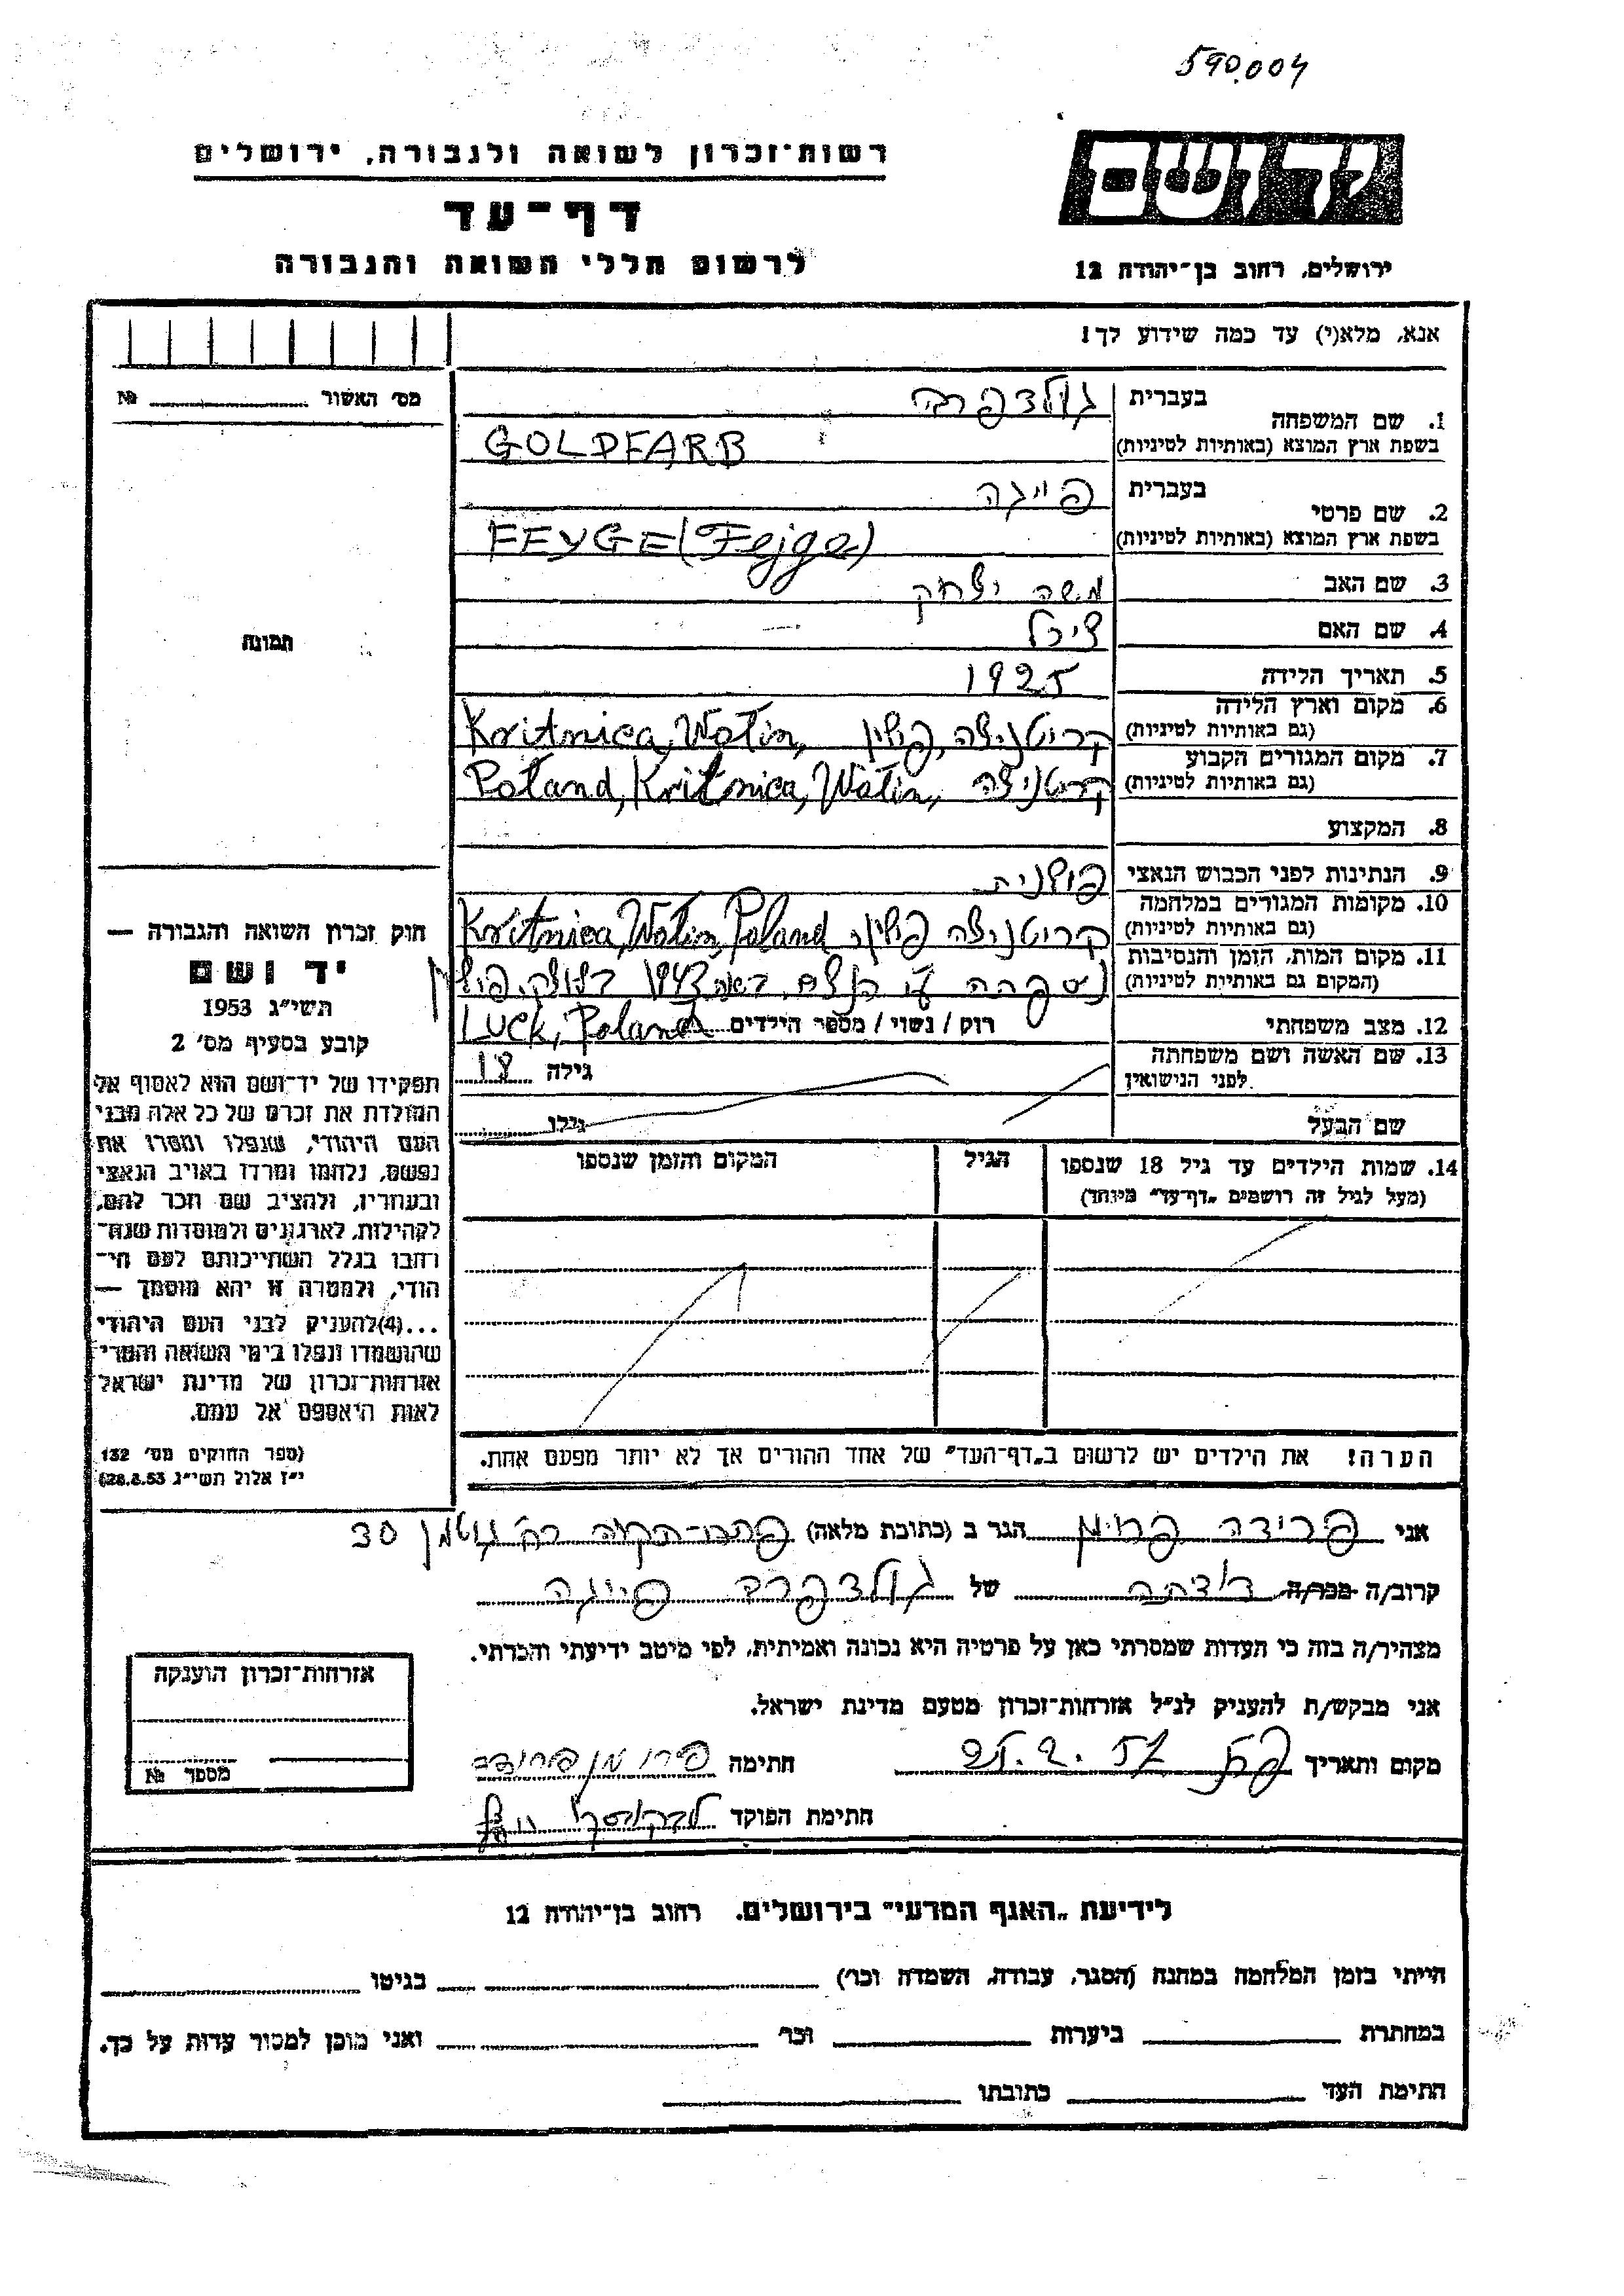 590.004
רשות־זכרון לשואה ולגבורה, ירושלים
יד ושם
דף־עד
לרשום חללי השואה והגבורה
ירושלים, רחוב בן־יהודה 12
אנא, מלא(י) עד כמה שידוע לך!
מס׳ האשור № 
1. שם המשפחה
בעברית גולדפרב
בשפת ארץ המוצא (באותיות לטיניות) GOLDFARB
2. שם פרטי
בעברית פייגה
בשפת ארץ המוצא (באותיות לטיניות) FEYGE (Fejge)
3. שם האב משה יצחק
4. שם האם
5. תאריך הלידה 1925
6. מקום וארץ הלידה
(גם באותיות לטיניות) קריטניצה, פולין Kritnica, Wolin,
7. מקום המגורים הקבוע
(גם באותיות לטיניות) קריטניצה Poland, Kritnica, Wolin,
8. המקצוע
9. הנתינות לפני הכבוש הנאצי פולנית
10. מקומות המגורים במלחמה
(גם באותיות לטיניות) קריטניצה פולין Kritnica, Wolin, Poland
11. מקום המות, הזמן והנסיבות
(המקום גם באותיות לטיניות) נספתה ע״י הנאצים 1943 בלוצק, פולין
12. מצב משפחתי רוק / נשוי / מספר הילדים Luck, Poland
13. שם האשה ושם משפחתה
לפני הנישואין גילה 18
שם הבעל גילו
14. שמות הילדים עד גיל 18 שנספו הגיל המקום והזמן שנספו
(מעל לגיל זה רושמים „דף־עד״ מיוחד)
הערה! את הילדים יש לרשום ב„דף־העד״ של אחד ההורים אך לא יותר מפעם אחת.
תמונה
חוק זכרון השואה והגבורה —
יד ושם
תשי״ג 1953
קובע בסעיף מס׳ 2
תפקידו של יד־ושם הוא לאסוף אל
המולדת את זכרם של כל אלה מבני
העם היהודי, שנפלו ומסרו את
נפשם, נלחמו ומרדו באויב הנאצי
ובעוזריו, ולהציב שם וזכר להם,
לקהילות, לארגונים ולמוסדות שנח־
רבו בגלל השתייכותם לעם הי־
הודי, ולמטרה זו יהא מוסמך —
...(4)להעניק לבני העם היהודי
שהושמדו ונפלו בימי השואה והמרי
אזרחות־זכרון של מדינת ישראל
לאות היאספם אל עמם.
(ספר החוקים מס׳ 132
י״ז אלול תשי״ג 28.8.53)
אני פרידה פרומן הגר ב (כתובת מלאה) פתח-תקוה רח׳ גוטמן 30
קרוב/ה מכר/ה דודה של גולדפרב פייגה
מצהיר/ה בזה כי העדות שמסרתי כאן על פרטיה היא נכונה ואמיתית, לפי מיטב ידיעתי והכרתי.
אני מבקש/ת להעניק לנ״ל אזרחות־זכרון מטעם מדינת ישראל.
מקום ותאריך חתימה פרומן פרידה
חתימת הפוקד
אזרחות־זכרון הוענקה
מספר №
לידיעת „האגף המדעי״ בירושלים, רחוב בן־יהודה 12
הייתי בזמן המלחמה במחנה (הסגר, עבודה, השמדה וכו׳) בגיטו
במחתרת ביערות וכו׳ ואני מוכן למסור עדות על כך.
חתימת העד כתובתו